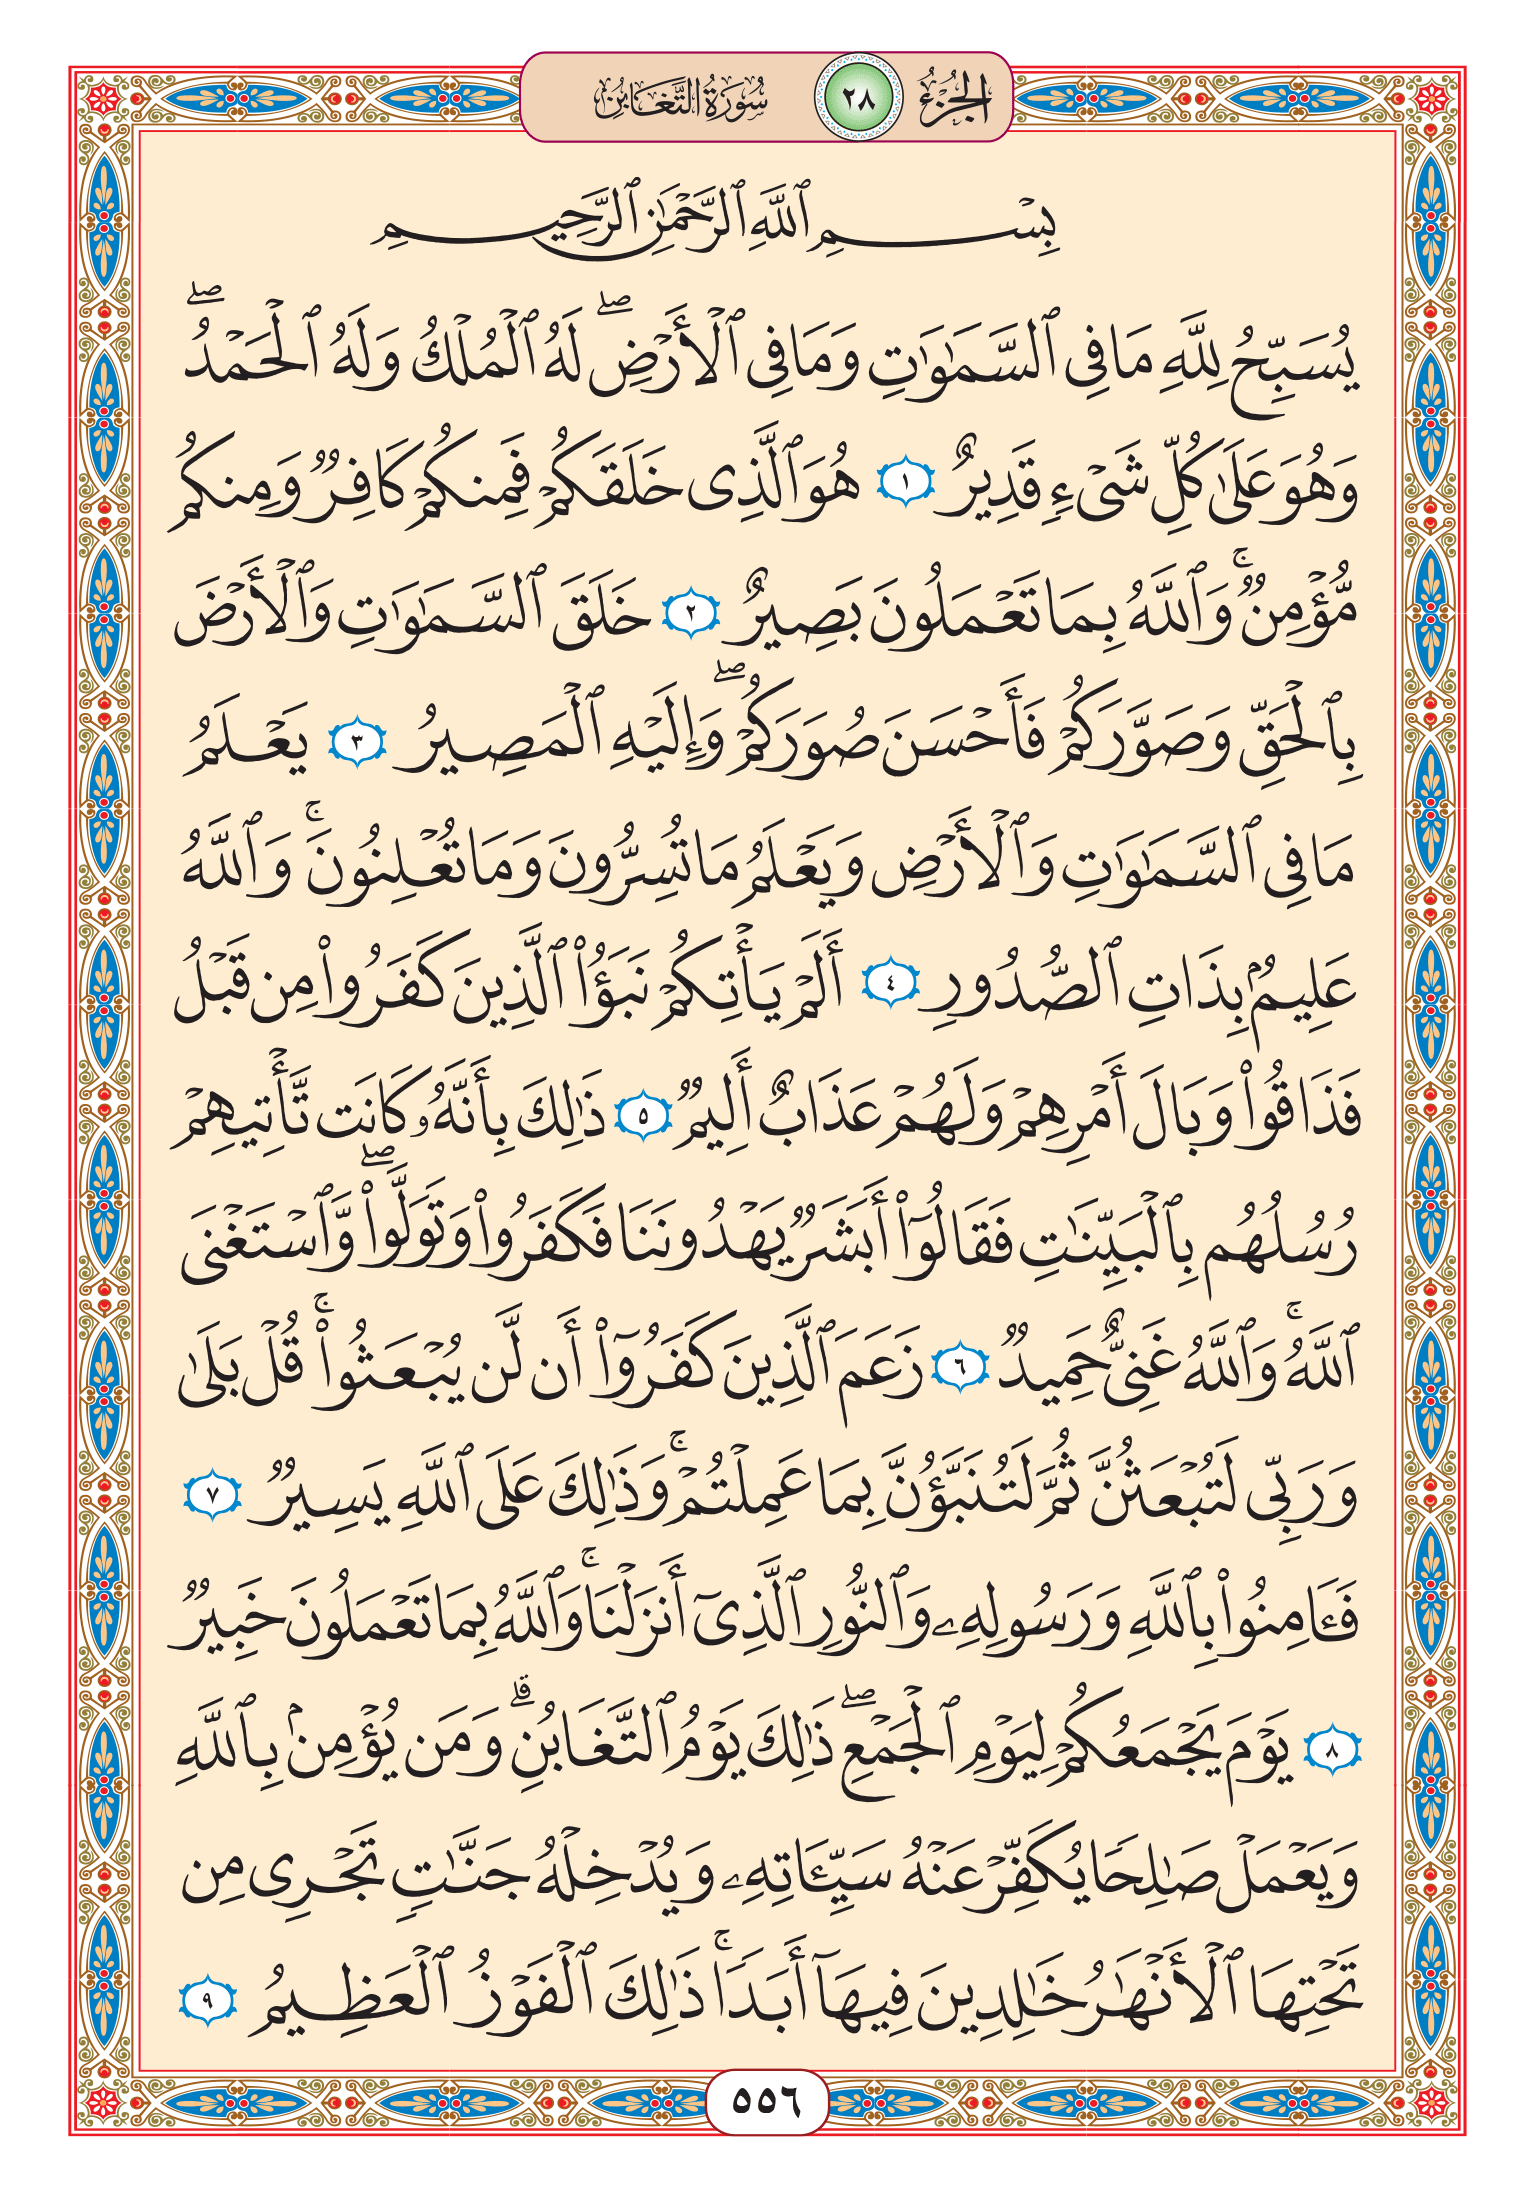 الجزء ٢٨ سورة التغابن
بِسْمِ ٱللَّهِ ٱلرَّحْمَٰنِ ٱلرَّحِيمِ
يُسَبِّحُ لِلَّهِ مَا فِى ٱلسَّمَٰوَٰتِ وَمَا فِى ٱلْأَرْضِ ۖ لَهُ ٱلْمُلْكُ وَلَهُ ٱلْحَمْدُ ۖ
وَهُوَ عَلَىٰ كُلِّ شَىْءٍ قَدِيرٌ ١ هُوَ ٱلَّذِى خَلَقَكُمْ فَمِنكُمْ كَافِرٌ وَمِنكُم
مُّؤْمِنٌ ۚ وَٱللَّهُ بِمَا تَعْمَلُونَ بَصِيرٌ ٢ خَلَقَ ٱلسَّمَٰوَٰتِ وَٱلْأَرْضَ
بِٱلْحَقِّ وَصَوَّرَكُمْ فَأَحْسَنَ صُوَرَكُمْ ۖ وَإِلَيْهِ ٱلْمَصِيرُ ٣ يَعْلَمُ
مَا فِى ٱلسَّمَٰوَٰتِ وَٱلْأَرْضِ وَيَعْلَمُ مَا تُسِرُّونَ وَمَا تُعْلِنُونَ ۚ وَٱللَّهُ
عَلِيمٌۢ بِذَاتِ ٱلصُّدُورِ ٤ أَلَمْ يَأْتِكُمْ نَبَؤُا۟ ٱلَّذِينَ كَفَرُوا۟ مِن قَبْلُ
فَذَاقُوا۟ وَبَالَ أَمْرِهِمْ وَلَهُمْ عَذَابٌ أَلِيمٌ ٥ ذَٰلِكَ بِأَنَّهُۥ كَانَت تَّأْتِيهِمْ
رُسُلُهُم بِٱلْبَيِّنَٰتِ فَقَالُوٓا۟ أَبَشَرٌ يَهْدُونَنَا فَكَفَرُوا۟ وَتَوَلَّوا۟ ۖ وَّٱسْتَغْنَى
ٱللَّهُ ۚ وَٱللَّهُ غَنِىٌّ حَمِيدٌ ٦ زَعَمَ ٱلَّذِينَ كَفَرُوٓا۟ أَن لَّن يُبْعَثُوا۟ ۚ قُلْ بَلَىٰ
وَرَبِّى لَتُبْعَثُنَّ ثُمَّ لَتُنَبَّؤُنَّ بِمَا عَمِلْتُمْ ۚ وَذَٰلِكَ عَلَى ٱللَّهِ يَسِيرٌ ٧
فَـَٔامِنُوا۟ بِٱللَّهِ وَرَسُولِهِۦ وَٱلنُّورِ ٱلَّذِىٓ أَنزَلْنَا ۚ وَٱللَّهُ بِمَا تَعْمَلُونَ خَبِيرٌ
٨ يَوْمَ يَجْمَعُكُمْ لِيَوْمِ ٱلْجَمْعِ ۖ ذَٰلِكَ يَوْمُ ٱلتَّغَابُنِ ۗ وَمَن يُؤْمِنۢ بِٱللَّهِ
وَيَعْمَلْ صَٰلِحًا يُكَفِّرْ عَنْهُ سَيِّـَٔاتِهِۦ وَيُدْخِلْهُ جَنَّٰتٍ تَجْرِى مِن
تَحْتِهَا ٱلْأَنْهَٰرُ خَٰلِدِينَ فِيهَآ أَبَدًا ۚ ذَٰلِكَ ٱلْفَوْزُ ٱلْعَظِيمُ ٩
٥٥٦